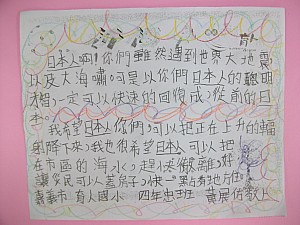 日本人啊!你們雖然遇到世界大地震
以及大海嘯可是以你們日本人的聰明
才智一定可以快速的回復成從前的日
本。
我希望日本人你們可以把正在上升的輻
射降下來,我也很希望日本人可以把
在市區的海水,趕快撤離,好
讓災民可以蓋房子,快一點有地方住。
嘉義市 育人國小 四年忠班 黃展佑敬上